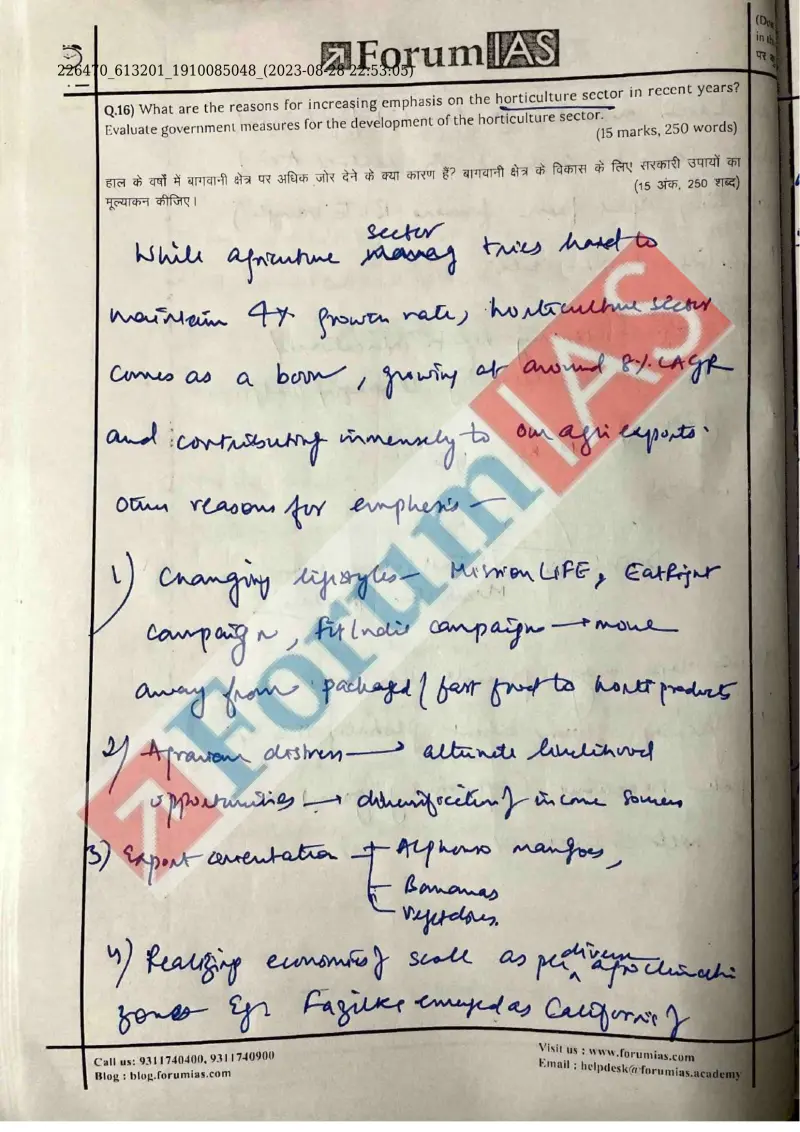 ForumIAS
226470_613201_1910085048_(2023-08-28 22:53:05)
Q.16) What are the reasons for increasing emphasis on the horticulture sector in recent years?
Evaluate government measures for the development of the horticulture sector.
(15 marks, 250 words)
हाल के वर्षों में बागवानी क्षेत्र पर अधिक जोर देने के क्या कारण हैं? बागवानी क्षेत्र के विकास के लिए सरकारी उपायों का
मूल्यांकन कीजिए।
(15 अंक, 250 शब्द)
sector
While agriculture tries hard to
maintain 4% growth rate, horticulture sector
comes as a boon, growing at around 8% CAGR
and contributing immensely to our agri exports.
Other reasons for emphasis —
1) Changing lifestyles — Mission LIFE, EatRight
campaign, Fit India campaign → move
away from packaged / fast food to horti products
2) Agrarian distress → alternate livelihood
opportunities → diversification of income sources
3) Export orientation → Alphonso mangoes,
Bananas
Vegetables.
4) Realizing economies of scale as per diverse agroclimatic
zones Eg: Fazilka emerged as California of
Call us: 9311740400, 9311740900
Blog : blog.forumias.com
Visit us : www.forumias.com
Email : helpdesk@forumias.academy
ForumIAS